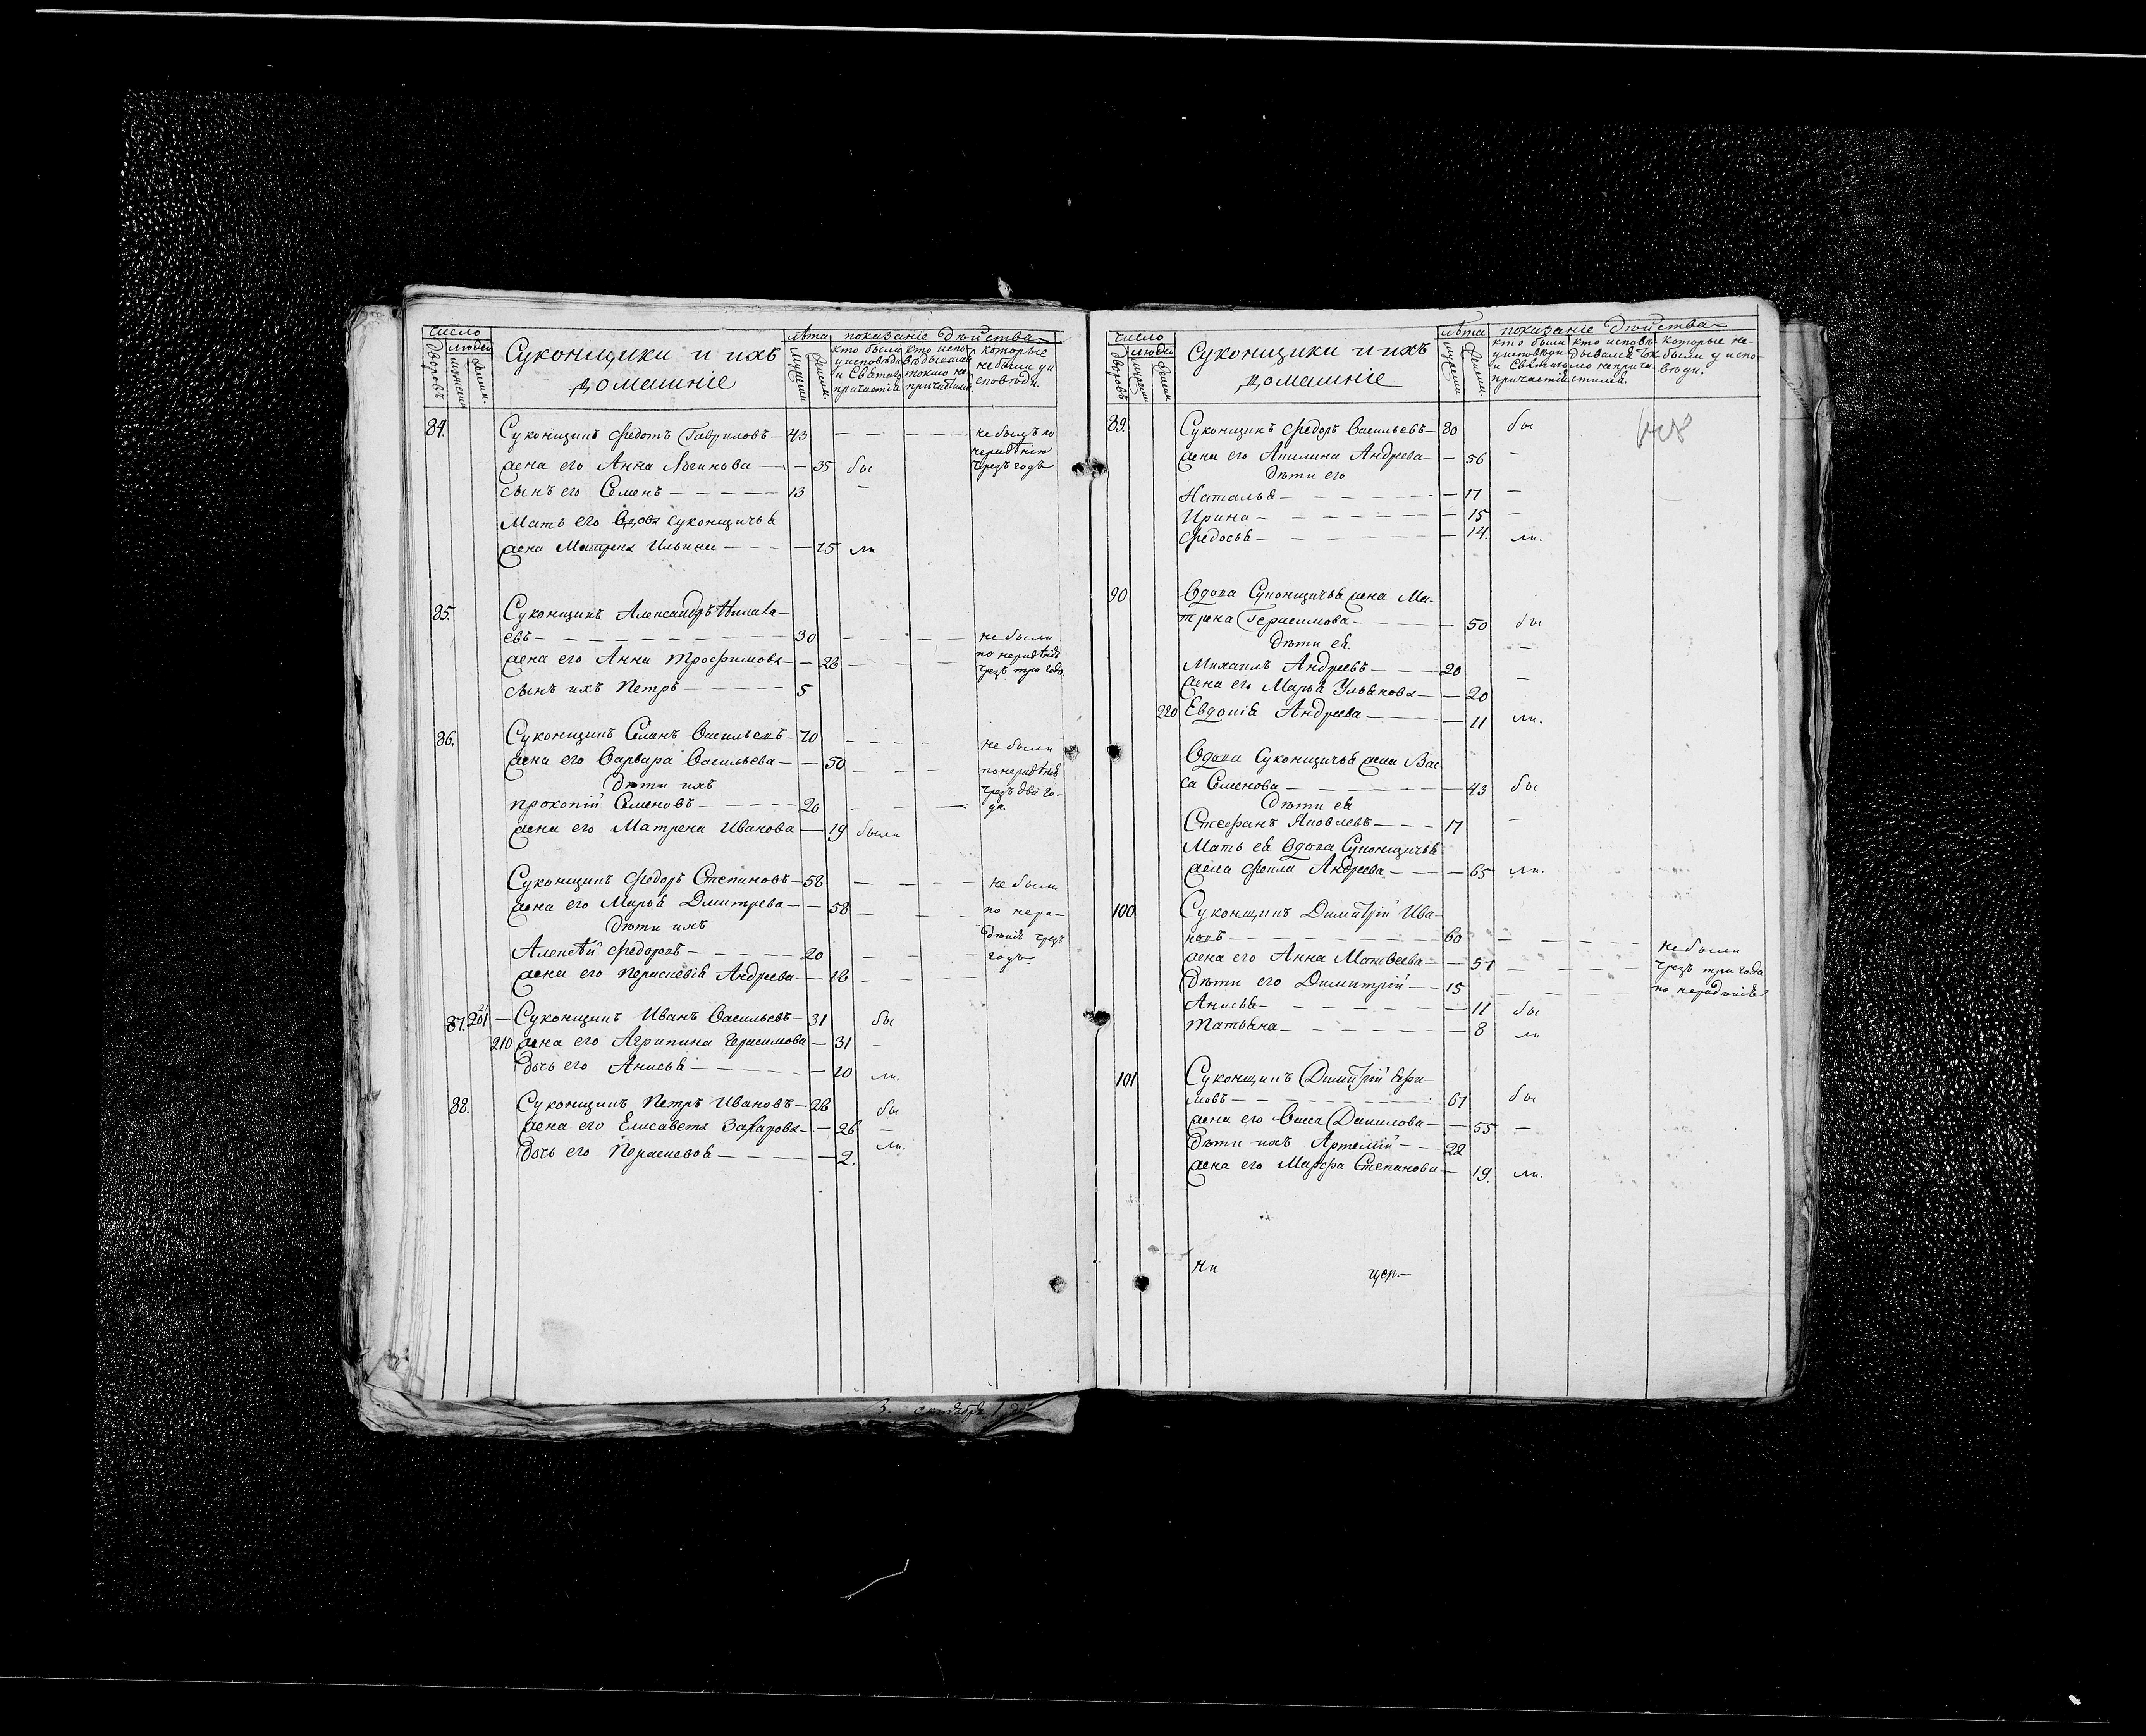 число лѣта показаніе дѣйства
дворовъ людей мужеск женск. Суконщики и ихъ домашніе мужеск женск. кто были у исповѣди и Святаго причастія кто исповѣдывался токмо не причастился. которые не были у исповѣди.
84. Суконщикъ Федотъ Гавриловъ — 43 — — — — не былъ по
нерадѣнію
жена его Анна Логинова — — 35 бы чрезъ годъ
сынъ его Семенъ — — — — — 13 —
Мать его Вдова суконщичья
жена Матрена Ильина — — — — 75 ли
85. Суконщикъ Александръ Никола-
евъ — — — — — — — — 30 — — — не были
жена его Анна Трофимова — — 28 — — — по нерадѣнію
чрезъ три года.
сынъ ихъ Петръ — — — — — 5
86. Суконщикъ Семенъ Васильевъ — 70 — — — не были
жена его Варвара Васильева — — 50 — — — по нерадѣнію
Дѣти ихъ чрезъ два го-
прокопій Семеновъ — — — — 20 — — — да.
жена его Матрена Иванова — 19 были
Суконщикъ Федоръ Степановъ — 58 — — — — не были
жена его Марья Дмитрева — — 58 — — — по нера-
Дѣти ихъ дѣнію чрезъ
Алексѣй Федоровъ — — — — 20 — — — годъ.
жена его Параскевія Андреева — 18 — —
87. 201 — Суконщикъ Иванъ Васильевъ — 31 бы
210 жена его Агрипина Герасимова — 31 —
дочь его Анисья — — — — — — 10 ли.
88. Суконщикъ Петръ Ивановъ — 26 бы
жена его Елисавета Захарова — — 26 —
дочь его Параскевоя — — — — — 2. ли.
число лѣта показаніе дѣйства
дворовъ людей мужеск женск. Суконщики и ихъ домашніе мужеск женск. кто были у исповѣди и Святаго причастія кто исповѣдывался токмо не причастился. которые не были у исповѣди.
89. Суконщикъ Федоръ Васильевъ — 80 бы
жена его Акилина Андреева — — 56 —
Дѣти его
Наталья — — — — — — — 17 —
Ирина — — — — — — — 15 —
Федосья — — — — — — 14. ли.
90 Вдова Суконщичья жена Ма-
трена Герасимова — — — — — 50 бы
Дѣти ея. —
Михаилъ Андреевъ — — — 20
жена его Марья Ульянова — — 20 —
220 Евдокія Андреева — — — — 11 ли.
Вдова Суконщичья жена Вас
са Семенова — — — — — — — 43 бы
Дѣти ея
Стефанъ Яковлевъ — — — 17 —
Мать ея Вдова Суконщичья
жена Фекла Андреева — — — — 65 ли.
100 Суконщикъ Димитрій Ива-
новъ — — — — — — — — 60 — — — — не были
жена его Анна Матвеева — — 51 — — — — чрезъ три года
Дѣти его Димитрій — — 15 — — — по нерадѣнію
Анисья — — — — — — — — 11 бы
Татьяна — — — — — — — — 8 ли
101 Суконщикъ Димитрій Ефи-
мовъ — — — — — — — — 61 бы
жена его Васса Данилова — — 55 —
Дѣти ихъ Артемій — — 22
жена его Марфа Степанова — 19. ли.
ни цер.—